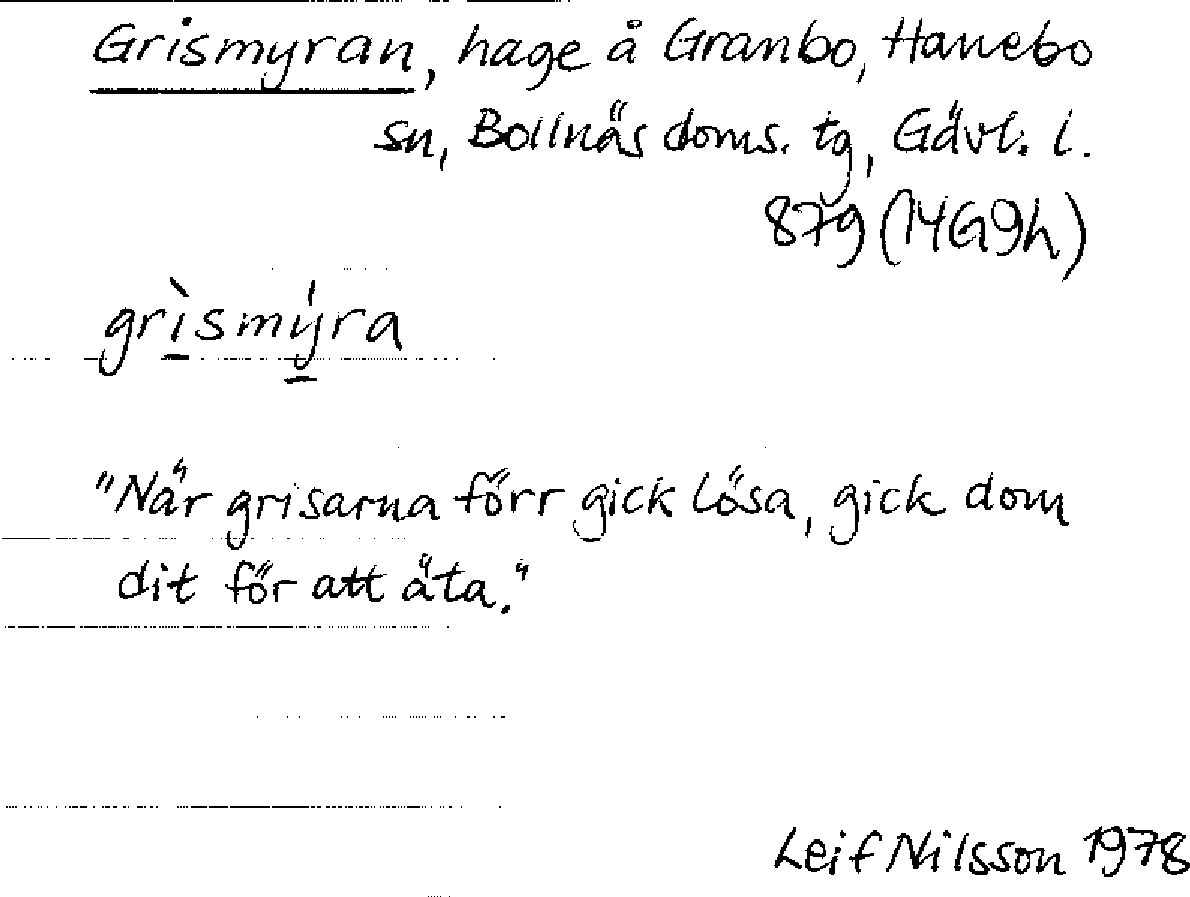 Grismyran, hage å Granbo, Hanebo
sn, Bollnäs doms. tg, Gävl. l.
879 (14G9h)
grì̲smý̲ra
"När grisarna förr gick lösa, gick dom
dit för att äta."
Leif Nilsson 1978